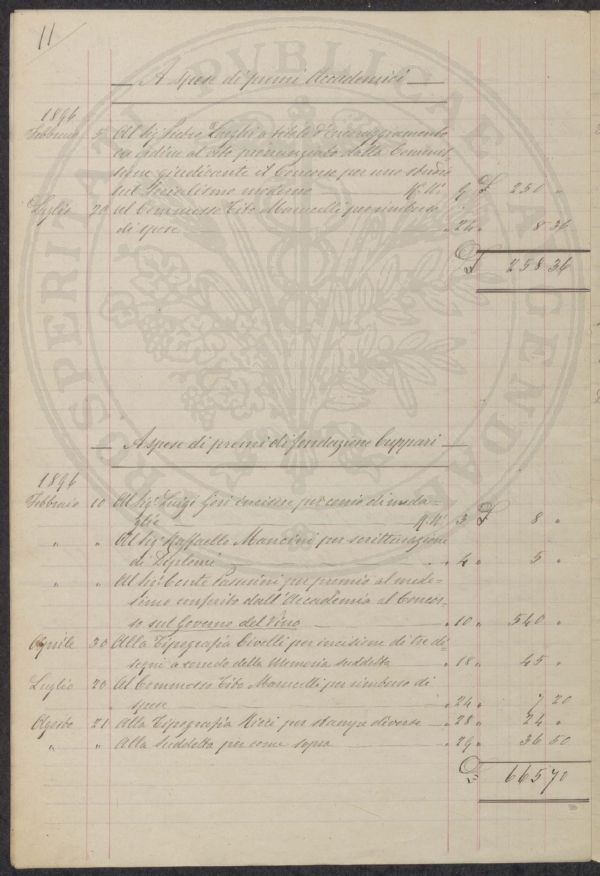 11
PROSPERITATI PVBLICAE AVGENDAE
A spese di premi Accademici
1896
Febbraio 5 Al Sig. Pietro a titolo d'incoraggiamento
ed ordine al voto pronunziato dalla Commis-
sione giudicante il Concorso per uno studio
sul Socialismo moderno R. N.º 9 £ 250 "
Luglio 20 al Commesso Tito Marucelli per rimborso
di spese " 24 " 8 36
£ 258 36
A spese di premi di fondazione Cuppari
1896
Febbraio 10 Al Sig. Luigi Gori incisore per conio di meda-
glie R. N.º 3 £ 8 "
" " Al Sig. Raffaello Mancini per scritturazione
di Diplomi " 4 " 5 "
" " Al Sig. Conte Pasolini per premio al mede-
simo conferito dall'Accademia al Concor-
so sul Governo del Vino " 10 " 540 "
Aprile 30 Alla Tipografia Civelli per incisione di tre di-
segni a corredo della Memoria suddetta " 18 " 45 "
Luglio 20 Al Commesso Tito Marucelli per rimborso di
spese " 24 " 7 20
Agosto 21 Alla Tipografia Ricci per stampe diverse " 28 " 24 "
" " Alla suddetta per come sopra " 29 " 36 50
£ 665 70